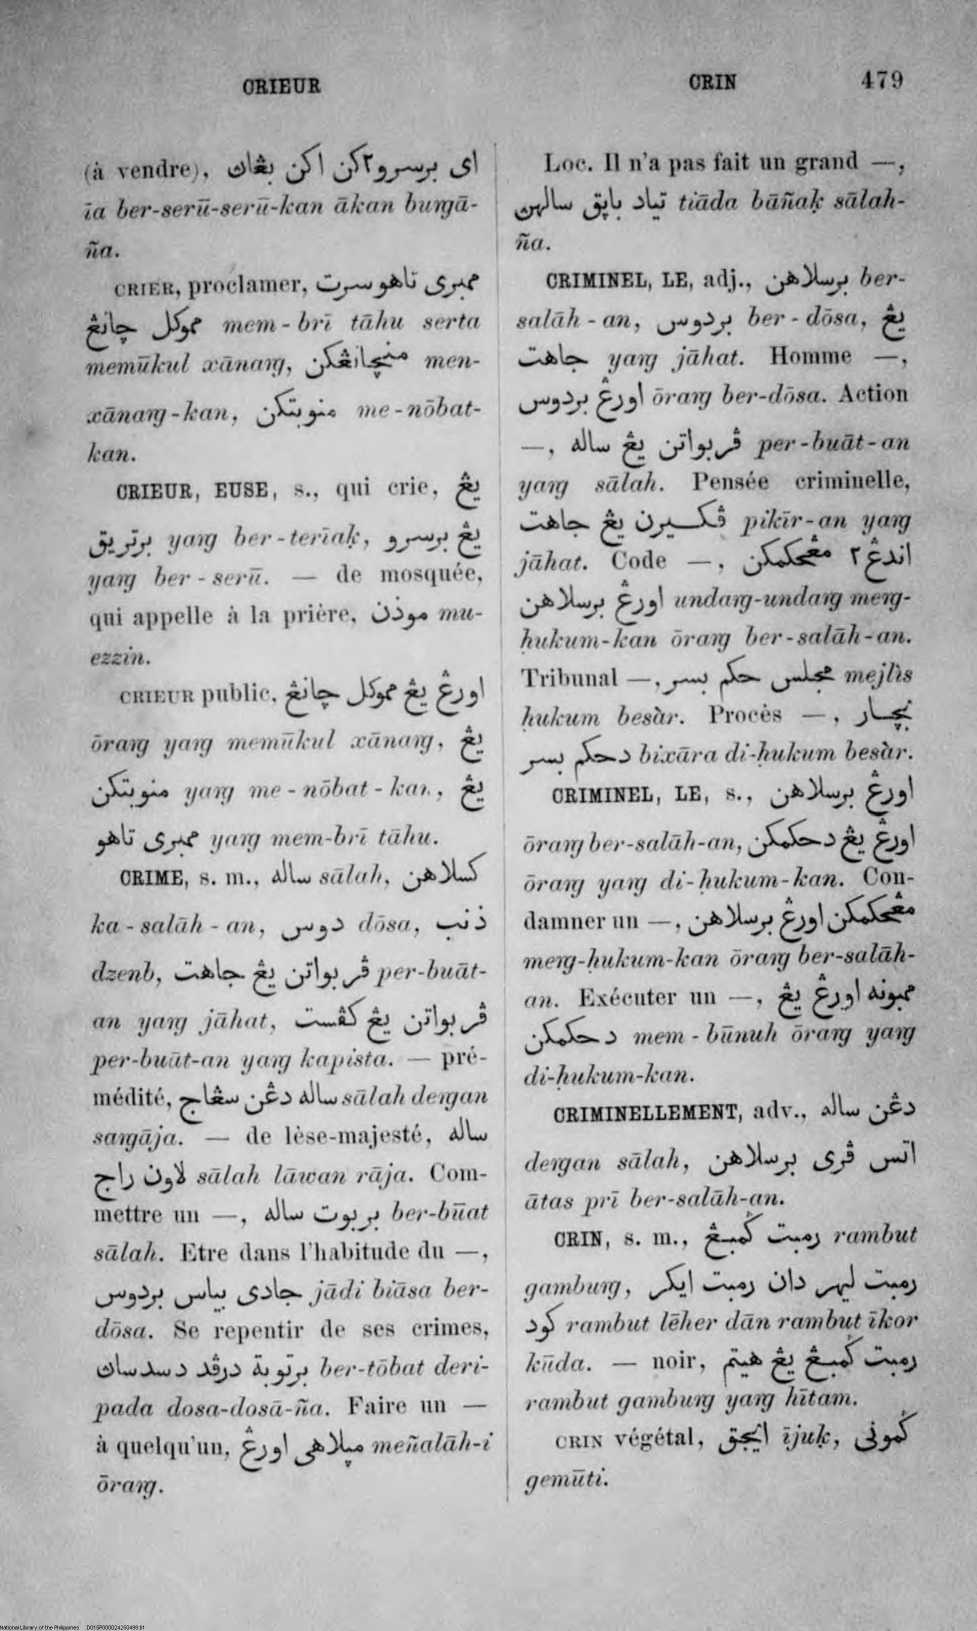 CRIEUR
CRIN 479
(à vendre), اى برسرو٢كن اكن بڠاڽ
īa ber-serū-serū-kan ākan buṅgā-
ña.
CRIER, proclamer, ممبرى تاهو سرت
مموكل چانڠ mem-brī tāhu serta
memūkul xānaṅg, منچانڠكن men-
xānaṅg-kan, منوبتكن me-nōbat-
kan.
CRIEUR, EUSE, s., qui crie, يڠ
برتريق yaṅg ber-terīaḳ, يڠ برسرو
yaṅg ber-serū. — de mosquée,
qui appelle à la prière, موذن mu-
ezzin.
CRIEUR public, اورڠ يڠ مموكل چانڠ
ōraṅg yaṅg memūkul xānaṅg, يڠ
منوبتكن yaṅg me-nōbat-kan, يڠ
ممبرى تاهو yaṅg mem-brī tāhu.
CRIME, s. m., ساله sālah, كسلاهن
ka-salāh-an, دوس dōsa, ذنب
dzenb, ڤربواتن يڠ جاهت per-buāt-
an yaṅg jāhat, ڤربواتن يڠ كڤست
per-buāt-an yaṅg kapista. — pré-
médité, ساله دڠن سڠاج sālah deṅgan
saṅgāja. — de lèse-majesté, ساله
لاون راج sālah lāwan rāja. Com-
mettre un —, بربوت ساله ber-būat
sālah. Etre dans l'habitude du —,
جادى بياس بردوس jādi biāsa ber-
dōsa. Se repentir de ses crimes,
برتوبة درڤد دسدساڽ ber-tōbat deri-
pada dosa-dosā-ña. Faire un —
à quelqu'un, مڽلاهى اورڠ meñalāh-i
ōraṅg.
Loc. Il n'a pas fait un grand —,
تياد باڽق سالهڽ tiāda bāñaḳ sālah-
ña.
CRIMINEL, LE, adj., برسلاهن ber-
salāh-an, بردوس ber-dōsa, يڠ
جاهت yaṅg jāhat. Homme —,
اورڠ بردوس ōraṅg ber-dōsa. Action
—, ڤربواتن يڠ ساله per-buāt-an
yaṅg sālah. Pensée criminelle,
ڤكيرن يڠ جاهت pikīr-an yaṅg
jāhat. Code —, اندڠ٢ مڠحكمكن
اورڠ برسلاهن undaṅg-undaṅg meṅg-
ḥukum-kan ōraṅg ber-salāh-an.
Tribunal —, مجلس حكم بسر mejlis
ḥukum besàr. Procès —, بچار
دحكم بسر bixāra di-ḥukum besàr.
CRIMINEL, LE, s., اورڠ برسلاهن
ōraṅg ber-salāh-an, اورڠ يڠ دحكمكن
ōraṅg yaṅg di-ḥukum-kan. Con-
damner un —, مڠحكمكن اورڠ برسلاهن
meṅg-ḥukum-kan ōraṅg ber-salāh-
an. Exécuter un —, ممبونه اورڠ يڠ
دحكمكن mem-būnuh ōraṅg yaṅg
di-ḥukum-kan.
CRIMINELLEMENT, adv., دڠن ساله
deṅgan sālah, اتس ڤرى برسلاهن
ātas prī ber-salāh-an.
CRIN, s. m., رمبت ݢمبڠ rambut
gambuṅg, رمبت ليهر دان رمبت ايكر
كود rambut lēher dān rambut īkor
kūda. — noir, رمبت ݢمبڠ يڠ هيتم
rambut gambuṅg yaṅg hītam.
CRIN végétal, ايجق ījuḳ, ݢموتى
gemūti.
National Library of the Philippines